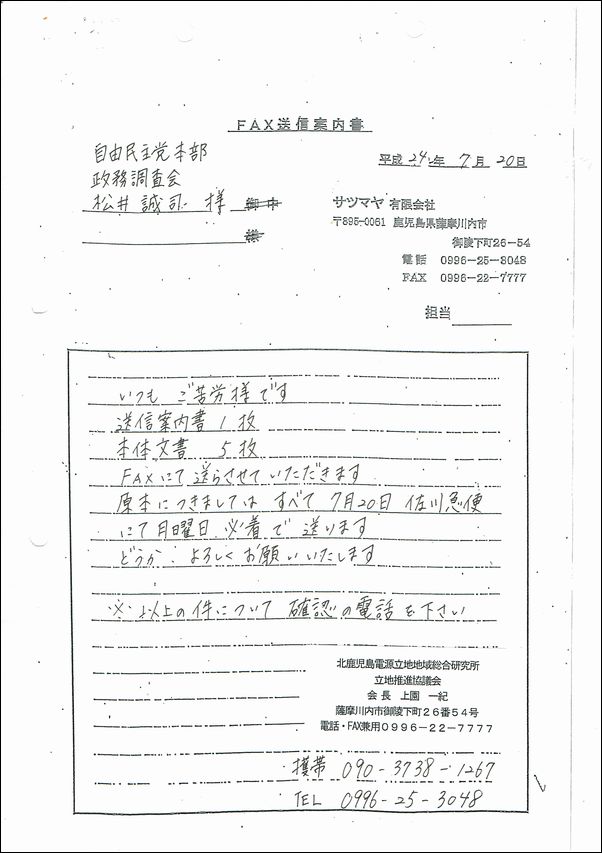 FAX送信案内書
自由民主党本部
平成24年7月20日
政務調査会
松井誠司様 御中
様
サツマヤ 有限会社
〒895-0061 鹿児島県薩摩川内市
御陵下町26-54
電話 0996-25-3048
FAX 0996-22-7777
担当
いつも ご苦労様です
送信案内書 1枚
本体文書 5枚
FAXにて送らさせていただきます
原本につきましては すべて 7月20日 佐川急便
にて月曜日 必着で送ります
どうか、よろしくお願いいたします
※ 以上の件について 確認の電話を下さい
北鹿児島電源立地地域総合研究所
立地推進協議会
会長 上園 一紀
薩摩川内市御陵下町26番54号
電話・FAX兼用0996-22-7777
携帯 090-3738-1267
TEL 0996-25-3048